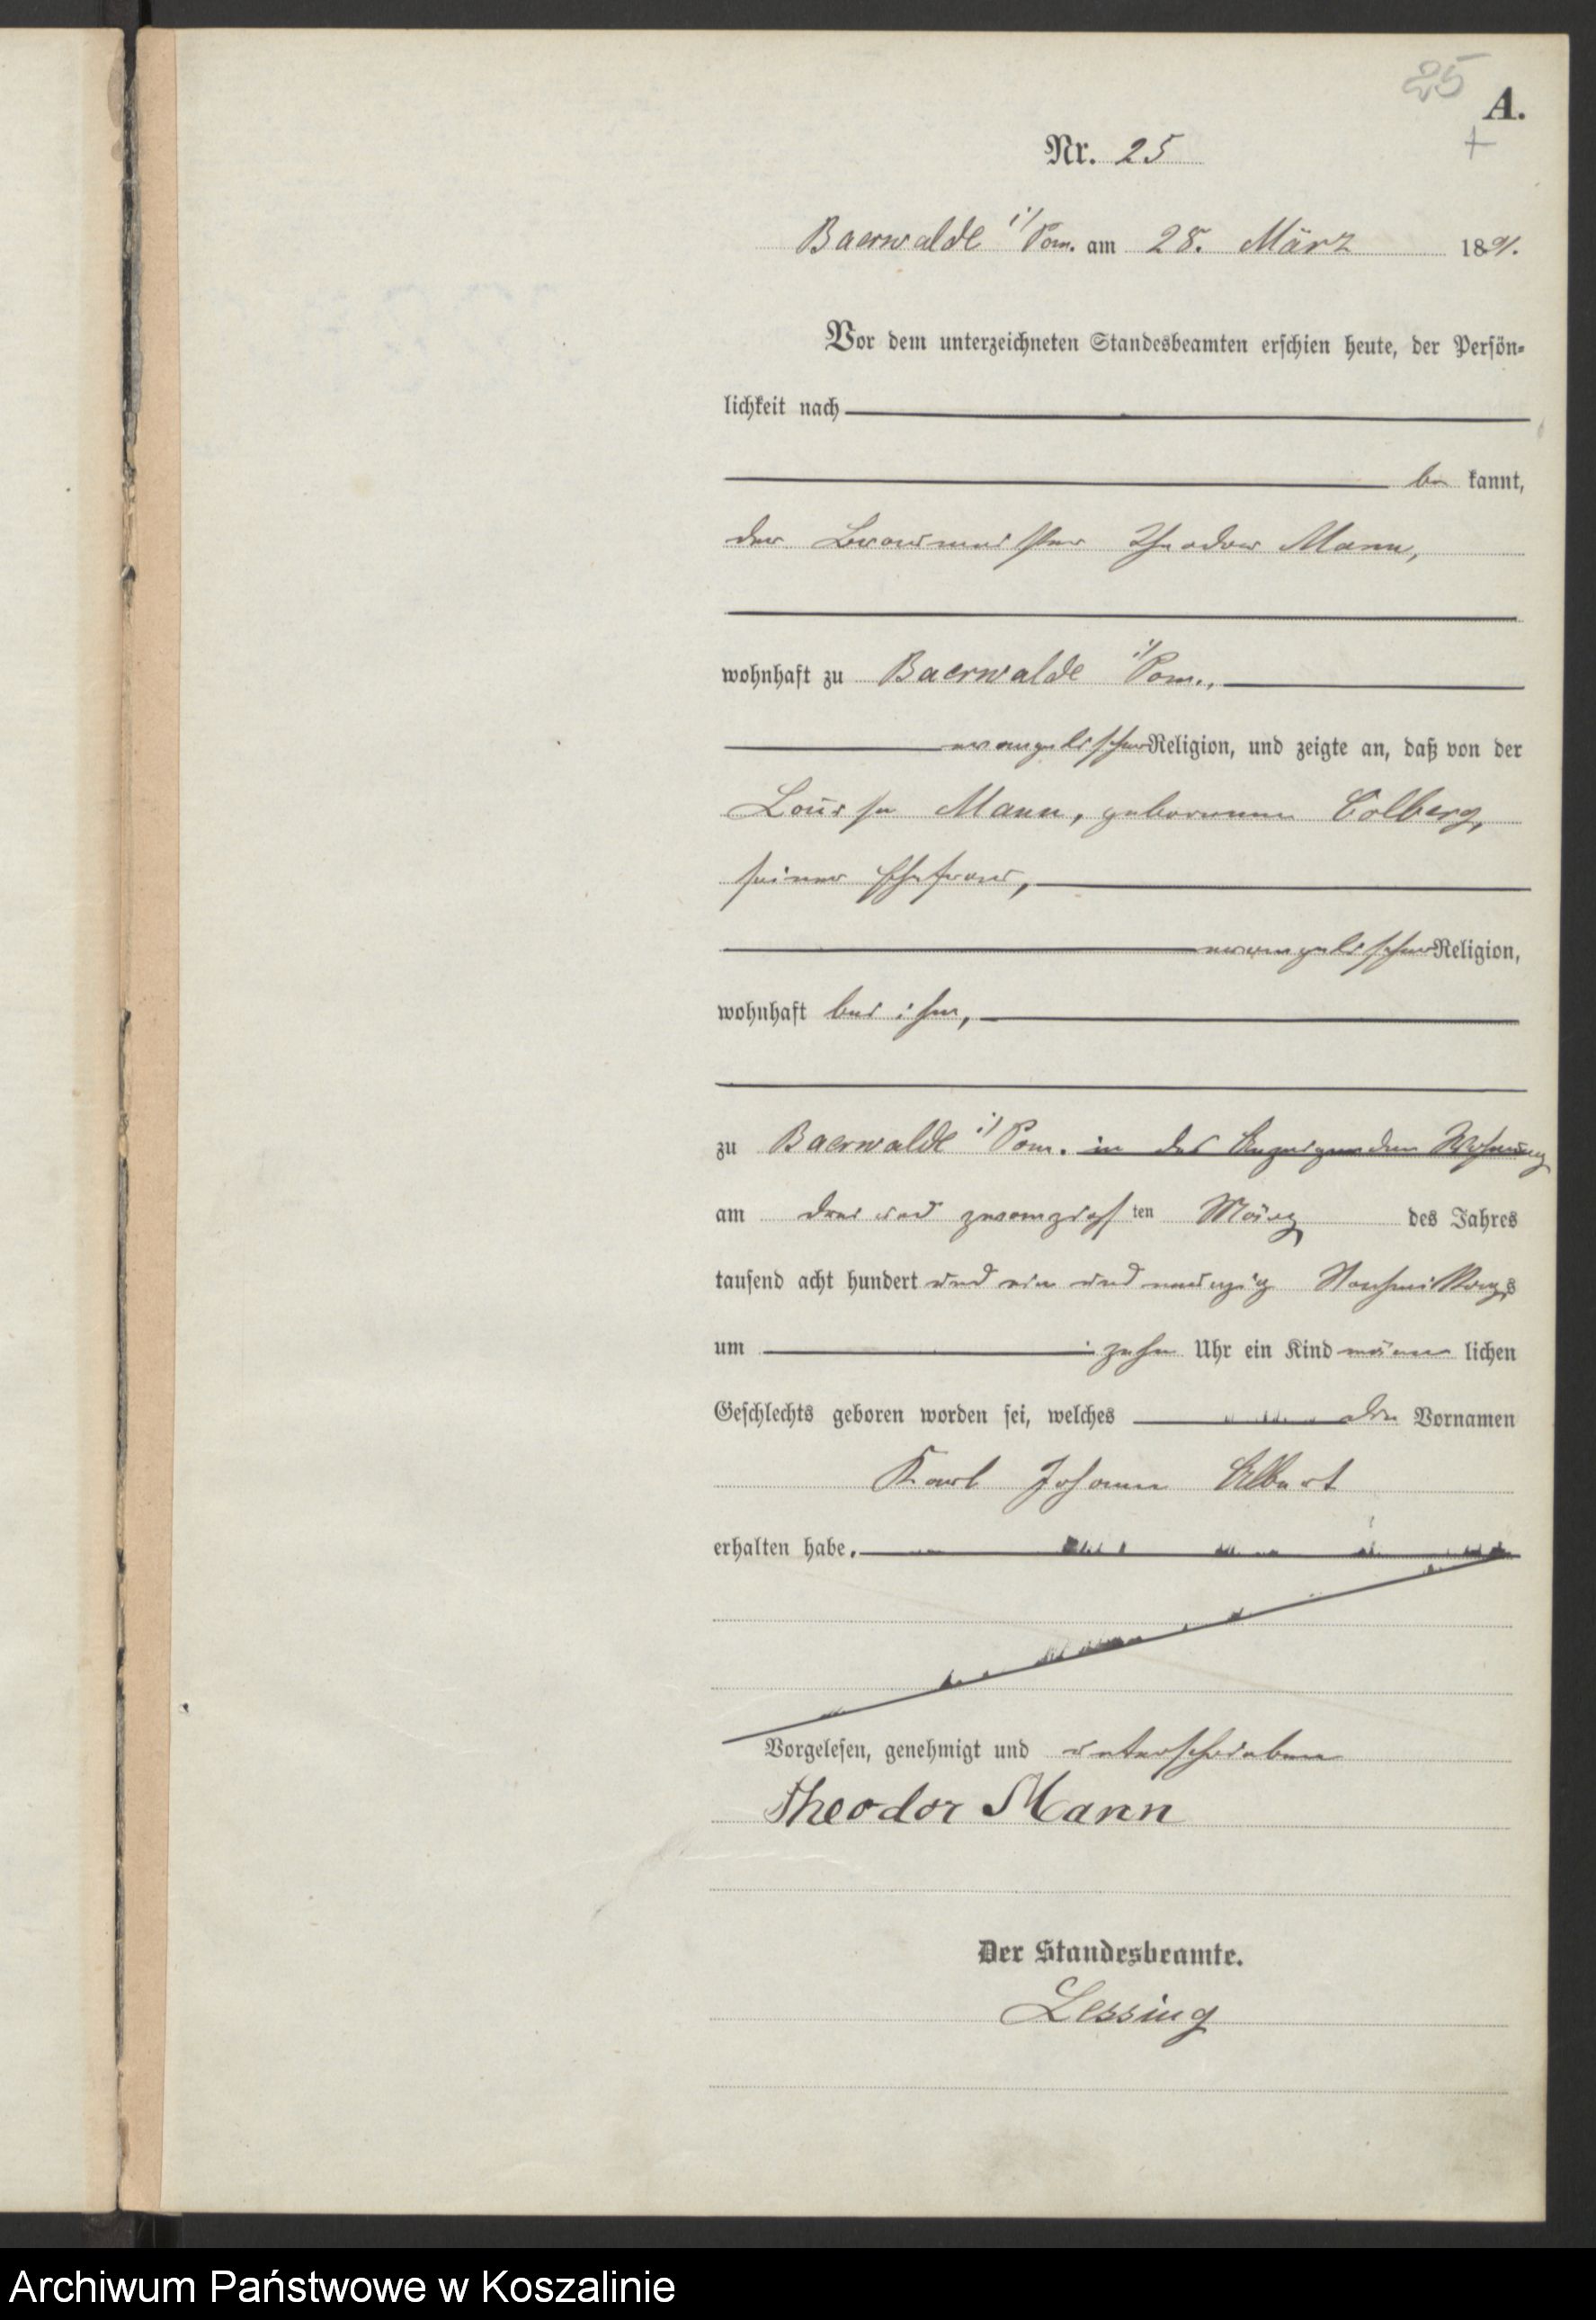 25
A.
+
Nr. 25
Baerwalde i/Pom. am 28. März 1891.
Vor dem unterzeichneten Standesbeamten erschien heute, der Persön-
lichkeit nach
be kannt,
der Braumeister Theodor Mann,
wohnhaft zu Baerwalde i/Pom.,
evangelischer Religion, und zeigte an, daß von der
Louise Mann, geborenen Colberg,
seiner Ehefrau,
evangelischer Religion,
wohnhaft bei ihm,
zu Baerwalde i/Pom. in des Anzeigenden Wohnung
am drei und zwanzigsten März des Jahres
tausend acht hundert und ein und neunzig Nachmittags
um zehn Uhr ein Kind männ lichen
Geschlechts geboren worden sei, welches die Vornamen
Karl Johann Albert
erhalten habe.
Vorgelesen, genehmigt und unterschrieben
Theodor Mann
Der Standesbeamte.
Lessing
Archiwum Państwowe w Koszalinie